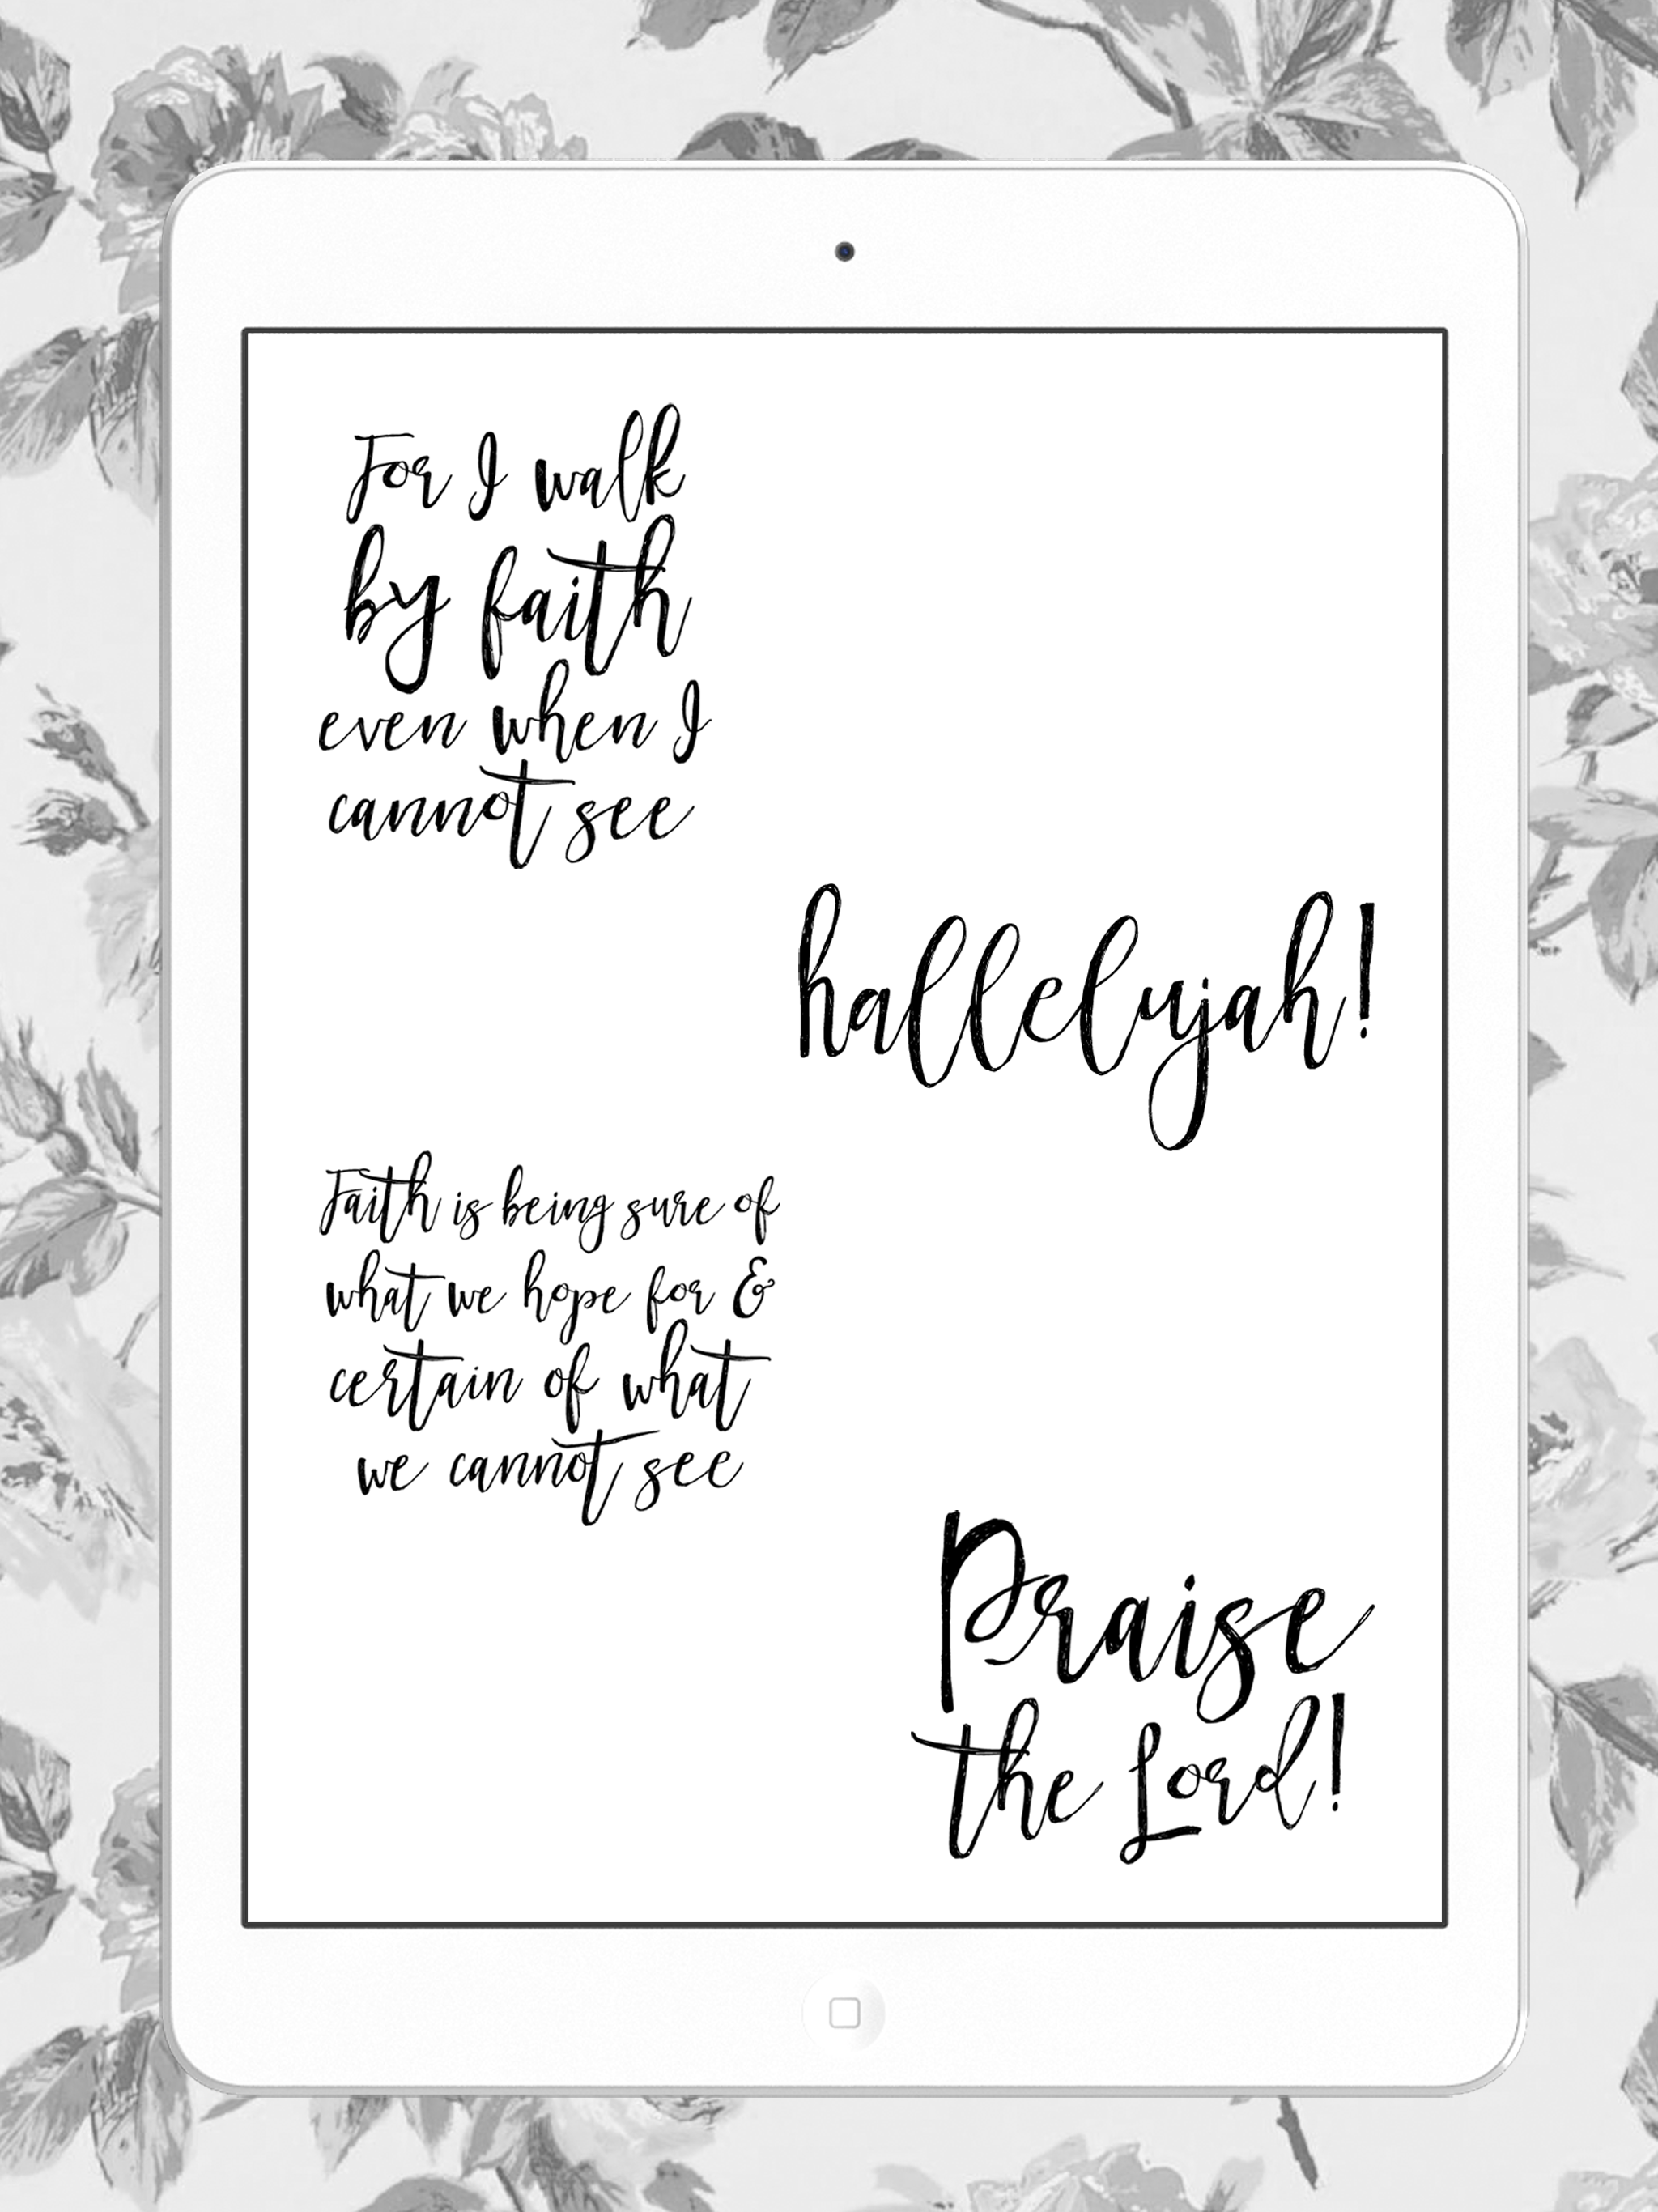 For I walk
by faith
even when I
cannot see
hallelujah!
Faith is being sure of
what we hope for &
certain of what
we cannot see
Praise
the Lord!